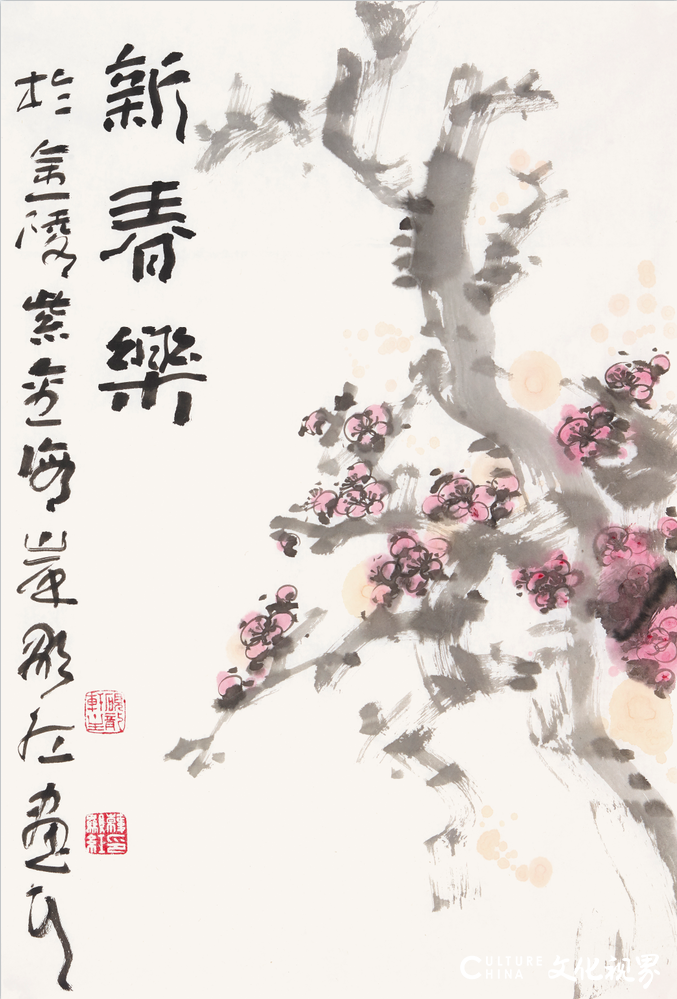 新春樂
於金陵紫金海岸顯红畫
CULTURE
CHINA
文化视界